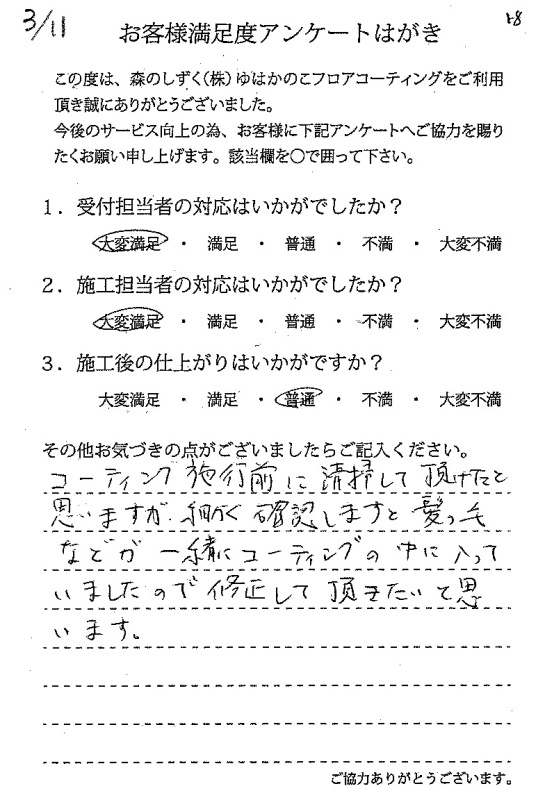 3/11
お客様満足度アンケートはがき
この度は、森のしずく(株)ゆはかのこフロアコーティングをご利用
頂き誠にありがとうございました。
今後のサービス向上の為、お客様に下記アンケートへご協力を賜り
たくお願い申し上げます。該当欄を〇で囲って下さい。
1．受付担当者の対応はいかがでしたか？
大変満足 ・ 満足 ・ 普通 ・ 不満 ・ 大変不満
2．施工担当者の対応はいかがでしたか？
大変満足 ・ 満足 ・ 普通 ・ 不満 ・ 大変不満
3．施工後の仕上がりはいかがですか？
大変満足 ・ 満足 ・ 普通 ・ 不満 ・ 大変不満
その他お気づきの点がございましたらご記入ください。
コーティング施行前に清掃して頂けたと
思いますが、細かく確認しますと髪っ毛
などが一緒にコーティングの中に入って
いましたので修正して頂きたいと思
います。
ご協力ありがとうございます。